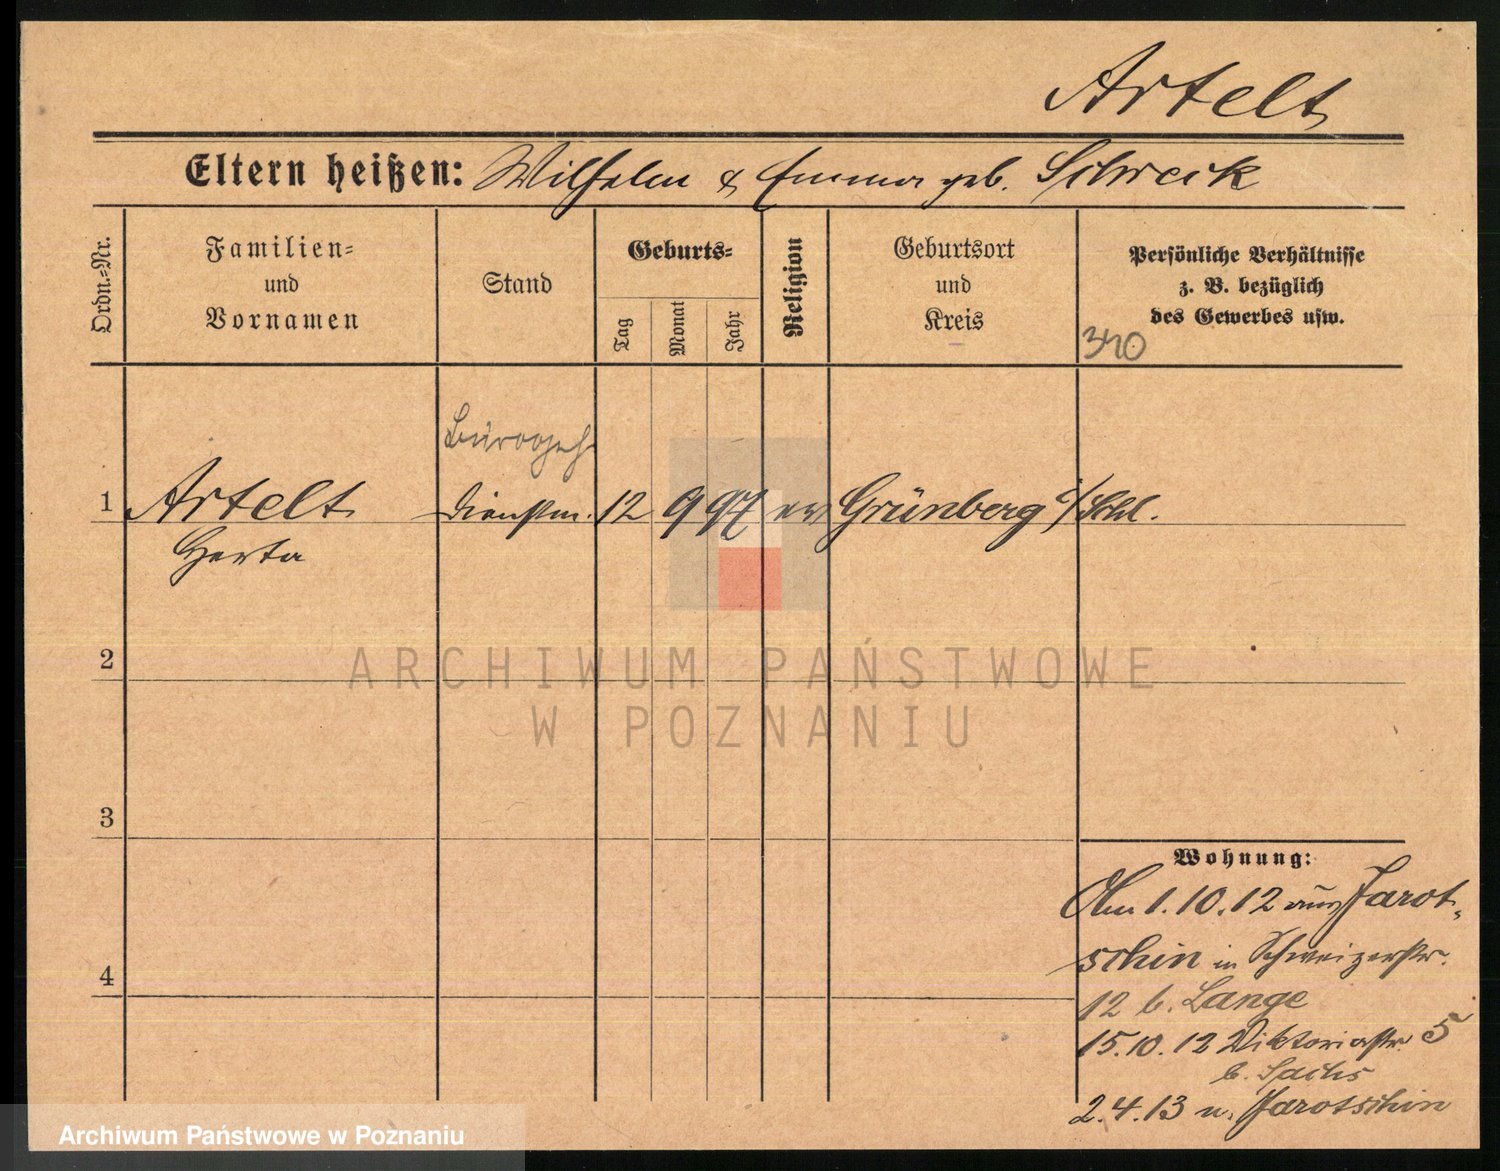 Artelt
Eltern heißen: Wilhelm & Emma geb. Schreck
Ordn.=Nr.
Familien=
und
Vornamen
Stand
Geburts=
Tag
Monat
Jahr
Religion
Geburtsort
und
Kreis
Persönliche Verhältnisse
z. B. bezüglich
des Gewerbes usw.
340
Bürogeh
1 Artelt Dienstm. 12 9 97 ev Grünberg i/Schl.
Herta
2
3
4
Wohnung:
Am 1.10.12 aus Jarot-
schin in Schweizerstr.
12 b. Lange
15.10.12 Viktoriastr. 5
b. Sachs
2.4.13 n. Jarotschin
ARCHIWUM PAŃSTWOWE
W POZNANIU
Archiwum Państwowe w Poznaniu